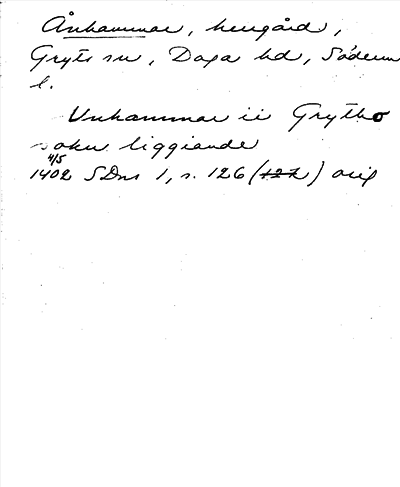 Ånhammar, herrgård,
Gryts sn, Daga hd, Söderm
l.
Vnhammar ii Grytho
sokn liggiande
4/5
1402 SDns 1, s. 126 (122) orig